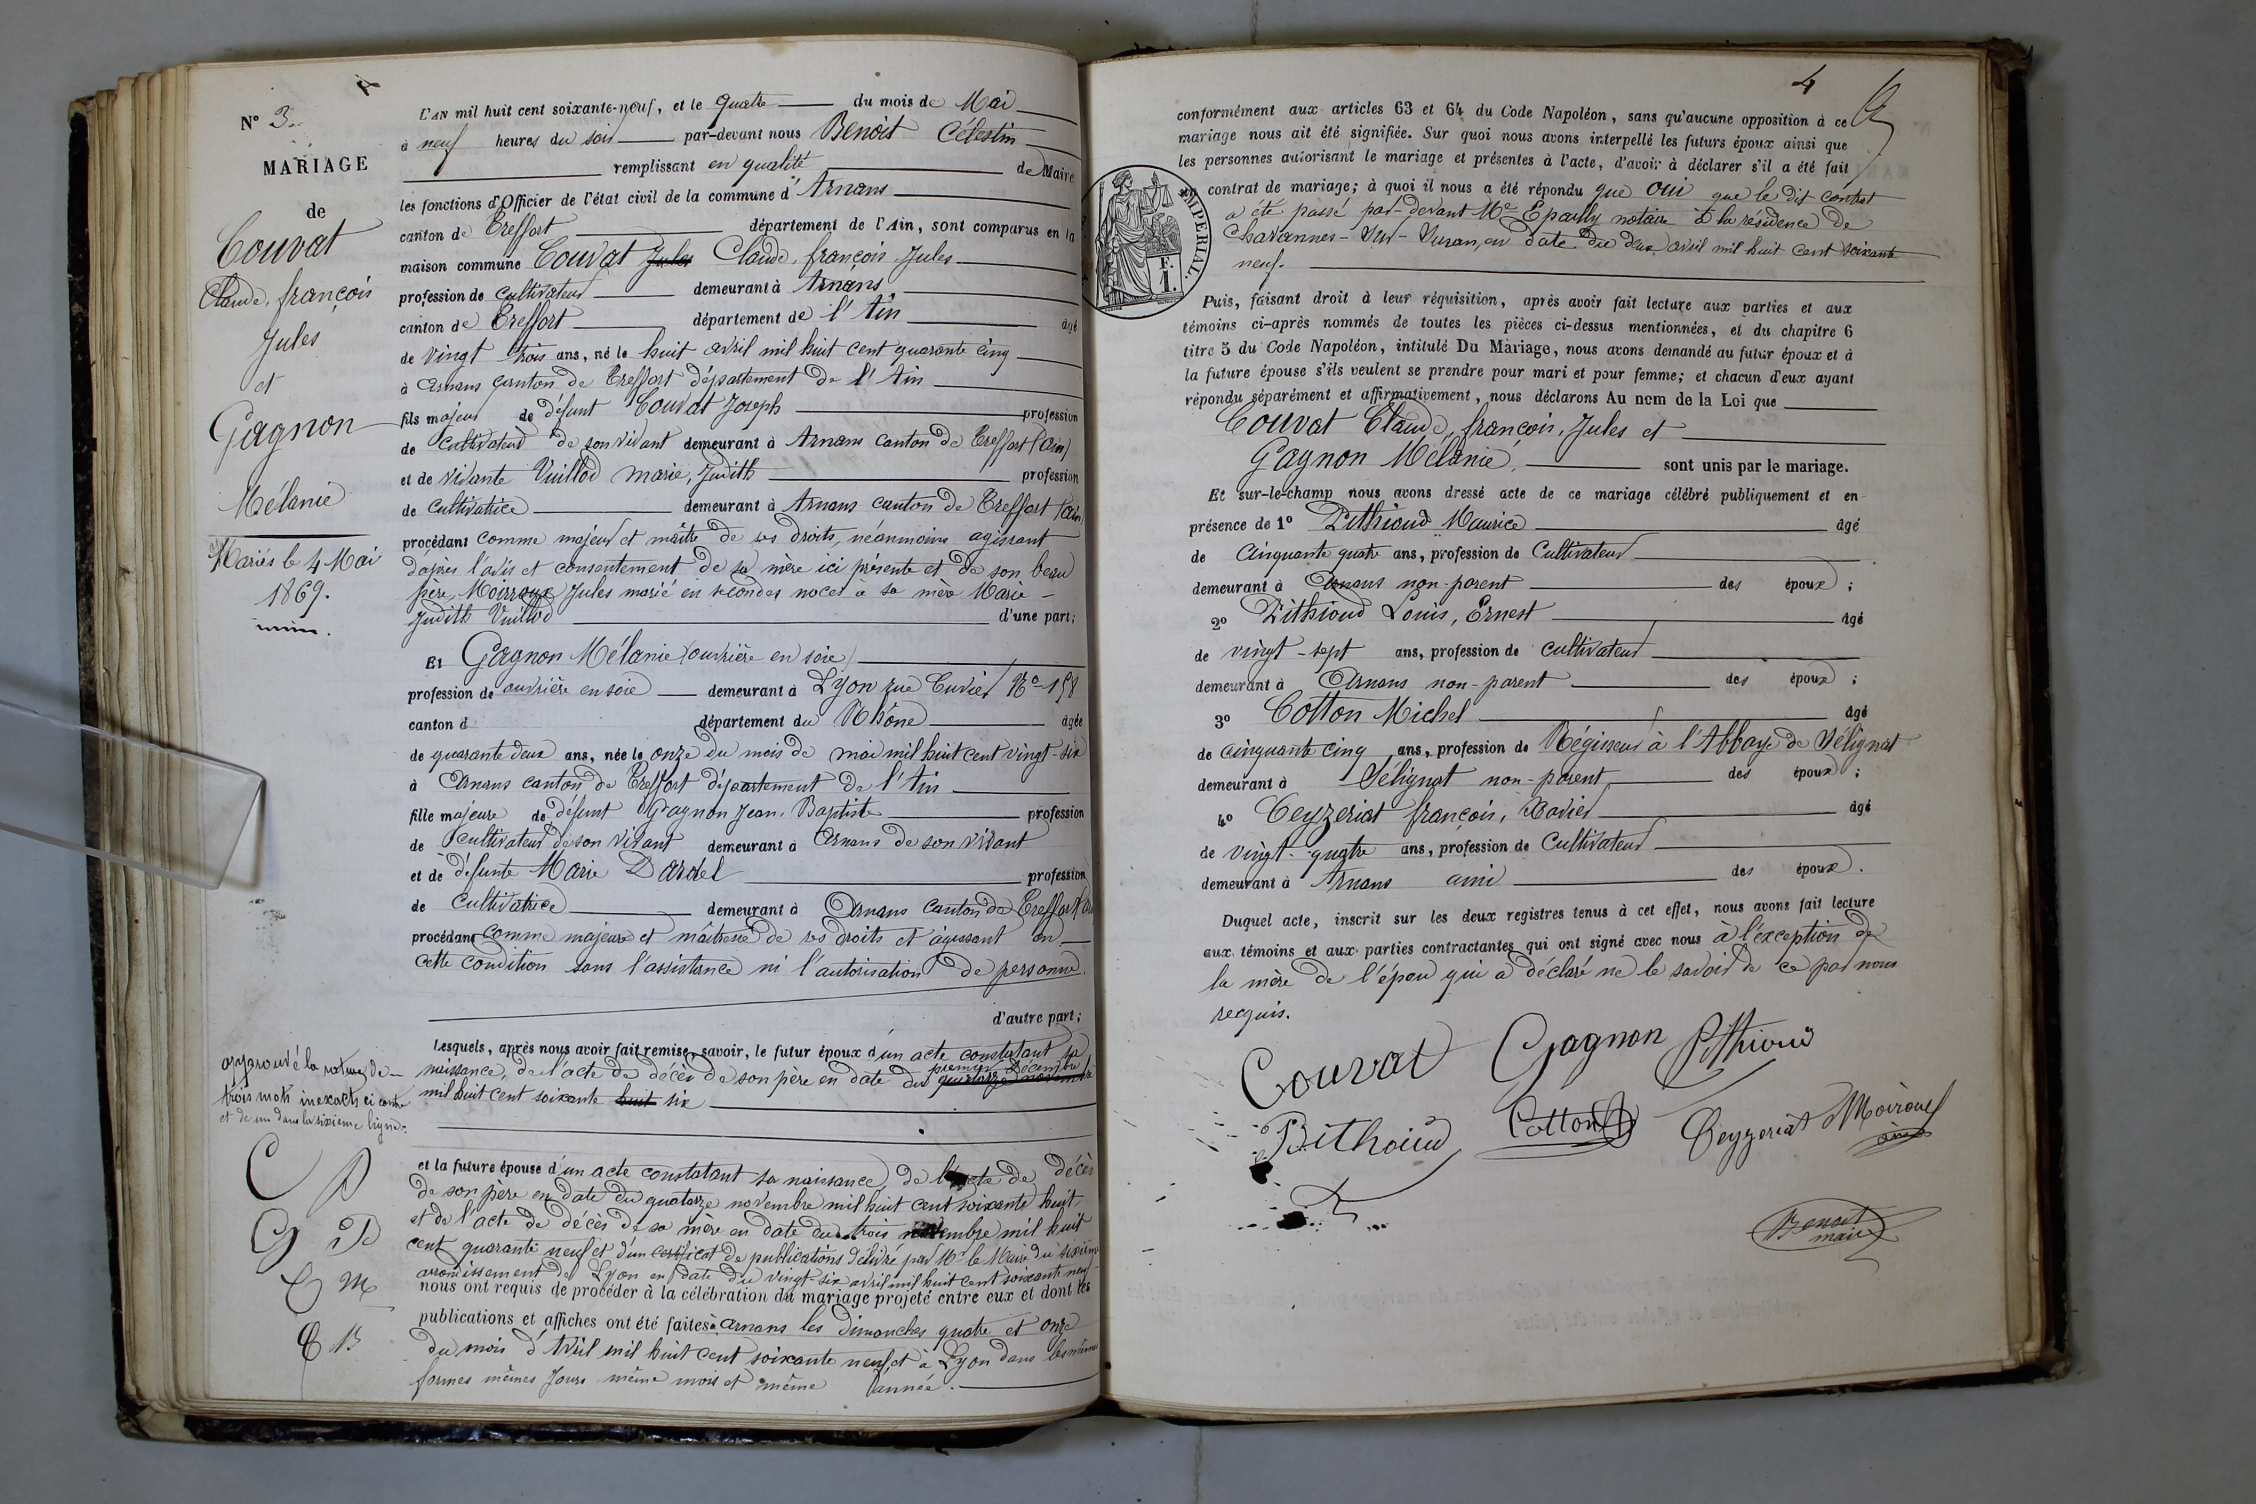 N° 3.
MARIAGE
de
Couvat
Claude, françois
Jules
et
Gagnon
Mélanie
Mariés le 4 Mai
1869.
approuvé la rature de
trois mots inexacts ci contre
et de un dans la sixième ligne.
C P
G P
C M
C B
L'AN mil huit cent soixante-neuf, et le quatre du mois de Mai
à neuf heures du soir par-devant nous Benoit Célestin
remplissant en qualité de Maire
les fonctions d'Officier de l'état civil de la commune d'Arnans
canton de Treffort département de l'Ain, sont comparus en la
maison commune Couvat Jules Claude, françois Jules
profession de cultivateur demeurant à Arnans
canton de Treffort département de l'Ain âgé
de vingt trois ans, né le huit avril mil huit cent quarante cinq
à Arnans canton de Treffort département de l'Ain
fils majeur de défunt Couvat Joseph profession
de cultivateur de son vivant demeurant à Arnans canton de Treffort (Ain)
et de vivante Vuillod marie, Judith profession
de cultivatrice demeurant à Arnans canton de Treffort (Ain)
procédant comme majeur et maître de ses droits, néanmoins agissant
d'après l'avis et consentement de sa mère ici présente et de son beau
père, Moiroux Jules marié en secondes noces à sa mère Marie
Judith Vuillod d'une part;
Et Gagnon Mélanie (ouvrière en soie)
profession de ouvrière en soie demeurant à Lyon rue Cuvier N° 158
canton d département du Rhône âgée
de quarante deux ans, née le onze du mois de mai mil huit cent vingt-six
à Arnans canton de Treffort département de l'Ain
fille majeure de défunt Gagnon Jean, Baptiste profession
de cultivateur de son vivant demeurant à Arnans de son vivant
et de défunte Marie Dardel profession
de cultivatrice demeurant à Arnans canton de Treffort (Ain
procédant comme majeure et maîtresse de ses droits et agissant en
cette condition sans l'assistance ni l'autorisation de personne.
d'autre part;
Lesquels, après nous avoir fait remise, savoir, le futur époux d'un acte constatant sa
naissance, de l'acte de décès de son père en date du quatorze novembre premier Décembre
mil huit cent soixante huit six
et la future épouse d'un acte constatant sa naissance, de l'acte de décès
de son père en date du quatorze novembre mil huit cent soixante huit
et de l'acte de décès de sa mère en date du trois novembre mil huit
cent quarante neuf et d'un certificat de publications délivré par Mr le Maire du sixième
arrondissement de Lyon en date du vingt-six avril mil huit cent soixante neuf
nous ont requis de procéder à la célébration du mariage projeté entre eux et dont les
publications et affiches ont été faites à Arnans les dimanches quatre et onze
du mois d'Avril mil huit cent soixante neuf, et à Lyon dans les mêmes
formes mêmes jours même mois et même année.
4
conformément aux articles 63 et 64 du Code Napoléon, sans qu'aucune opposition à ce
mariage nous ait été signifiée. Sur quoi nous avons interpellé les futurs époux ainsi que
les personnes autorisant le mariage et présentes à l'acte, d'avoir à déclarer s'il a été fait
contrat de mariage; à quoi il nous a été répondu que oui que le dit contrat
a été passé par-devant Me Epailly notaire à la résidence de
Chavannes-Sur-Suran, en date du deux avril mil huit cent soixante
neuf.
IMPERIAL.
F.
1.
Puis, faisant droit à leur réquisition, après avoir fait lecture aux parties et aux
témoins ci-après nommés de toutes les pièces ci-dessus mentionnées, et du chapitre 6
titre 5 du Code Napoléon, intitulé Du Mariage, nous avons demandé au futur époux et à
la future épouse s'ils veulent se prendre pour mari et pour femme; et chacun d'eux ayant
répondu séparément et affirmativement, nous déclarons Au nom de la Loi que
Couvat Claude, françois, Jules et
Gagnon Mélanie, sont unis par le mariage.
Et sur-le-champ nous avons dressé acte de ce mariage célébré publiquement et en
présence de 1° Pithioud Maurice âgé
de Cinquante quatre ans, profession de Cultivateur
demeurant à Arnans non-parent des époux;
2° Pithioud Louis, Ernest âgé
de vingt-sept ans, profession de cultivateur
demeurant à Arnans non-parent des époux;
3° Cotton Michel âgé
de cinquante cinq ans, profession de Régisseur à l'Abbaye de Sélignat
demeurant à Sélignat non-parent des époux;
4° Teyzeriat françois, Xavier âgé
de vingt-quatre ans, profession de Cultivateur
demeurant à Arnans ami des époux.
Duquel acte, inscrit sur les deux registres tenus à cet effet, nous avons fait lecture
aux témoins et aux parties contractantes qui ont signé avec nous à l'exception de
la mère de l'époux qui a déclaré ne le savoir de ce par nous
requis.
Couvat Gagnon Pithioud
Pithoiud Cotton Teyzeriat Moiroux
Benoit
maire